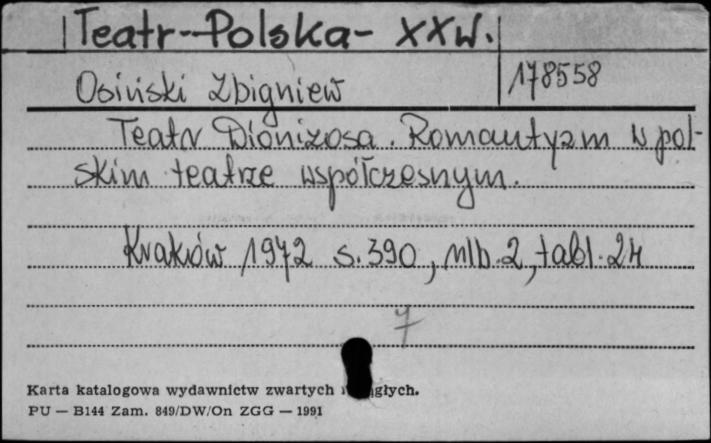 Teatr--Polska- XXw.
Osiński Zbigniew 178558
Teatr Dionizosa. Romantyzm w pol-
skim teatrze współczesnym.
Kraków 1972 s.390, nlb.2, tabl.24
7
Karta katalogowa wydawnictw zwartych i ciągłych.
PU — B144 Zam. 849/DW/On ZGG — 1991